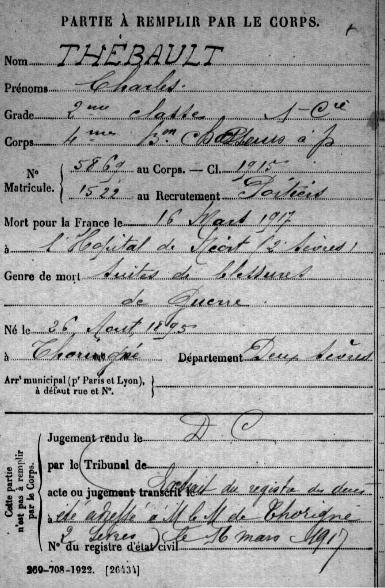 PARTIE À REMPLIR PAR LE CORPS.
Nom THÉBAULT
Prénoms Charles
Grade 2me classe 1e Cie
Corps 4me Bon Chasseurs à p
N° Matricule. { 5869 au Corps. — Cl. 1915
1522 au Recrutement Poitiers
Mort pour la France le 16 Mars 1917
à l'Hopital de Niort (2 Sèvres)
Genre de mort suites de blessures
de Guerre
Né le 26 Aout 1895
à Thorigné Département Deux Sèvres
Arrt municipal (pr Paris et Lyon), à défaut rue et N°.
Cette partie n'est pas à remplir par le Corps.
Jugement rendu le D C
par le Tribunal de
acte ou jugement transcrit le Extrait du registre des décès
été adressé à M le M de Thorigné
2 Sèvres) le 16 mars 1917
N° du registre d'état civil
269-708-1922. [26434]